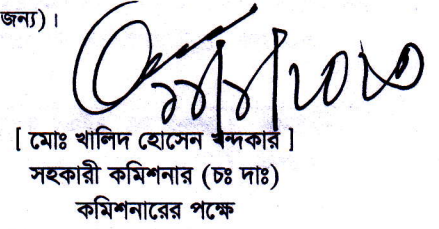 জন্য)।
[ মোঃ খালিদ হোসেন খন্দকার ]
সহকারী কমিশনার (চঃ দাঃ)
কমিশনারের পক্ষে